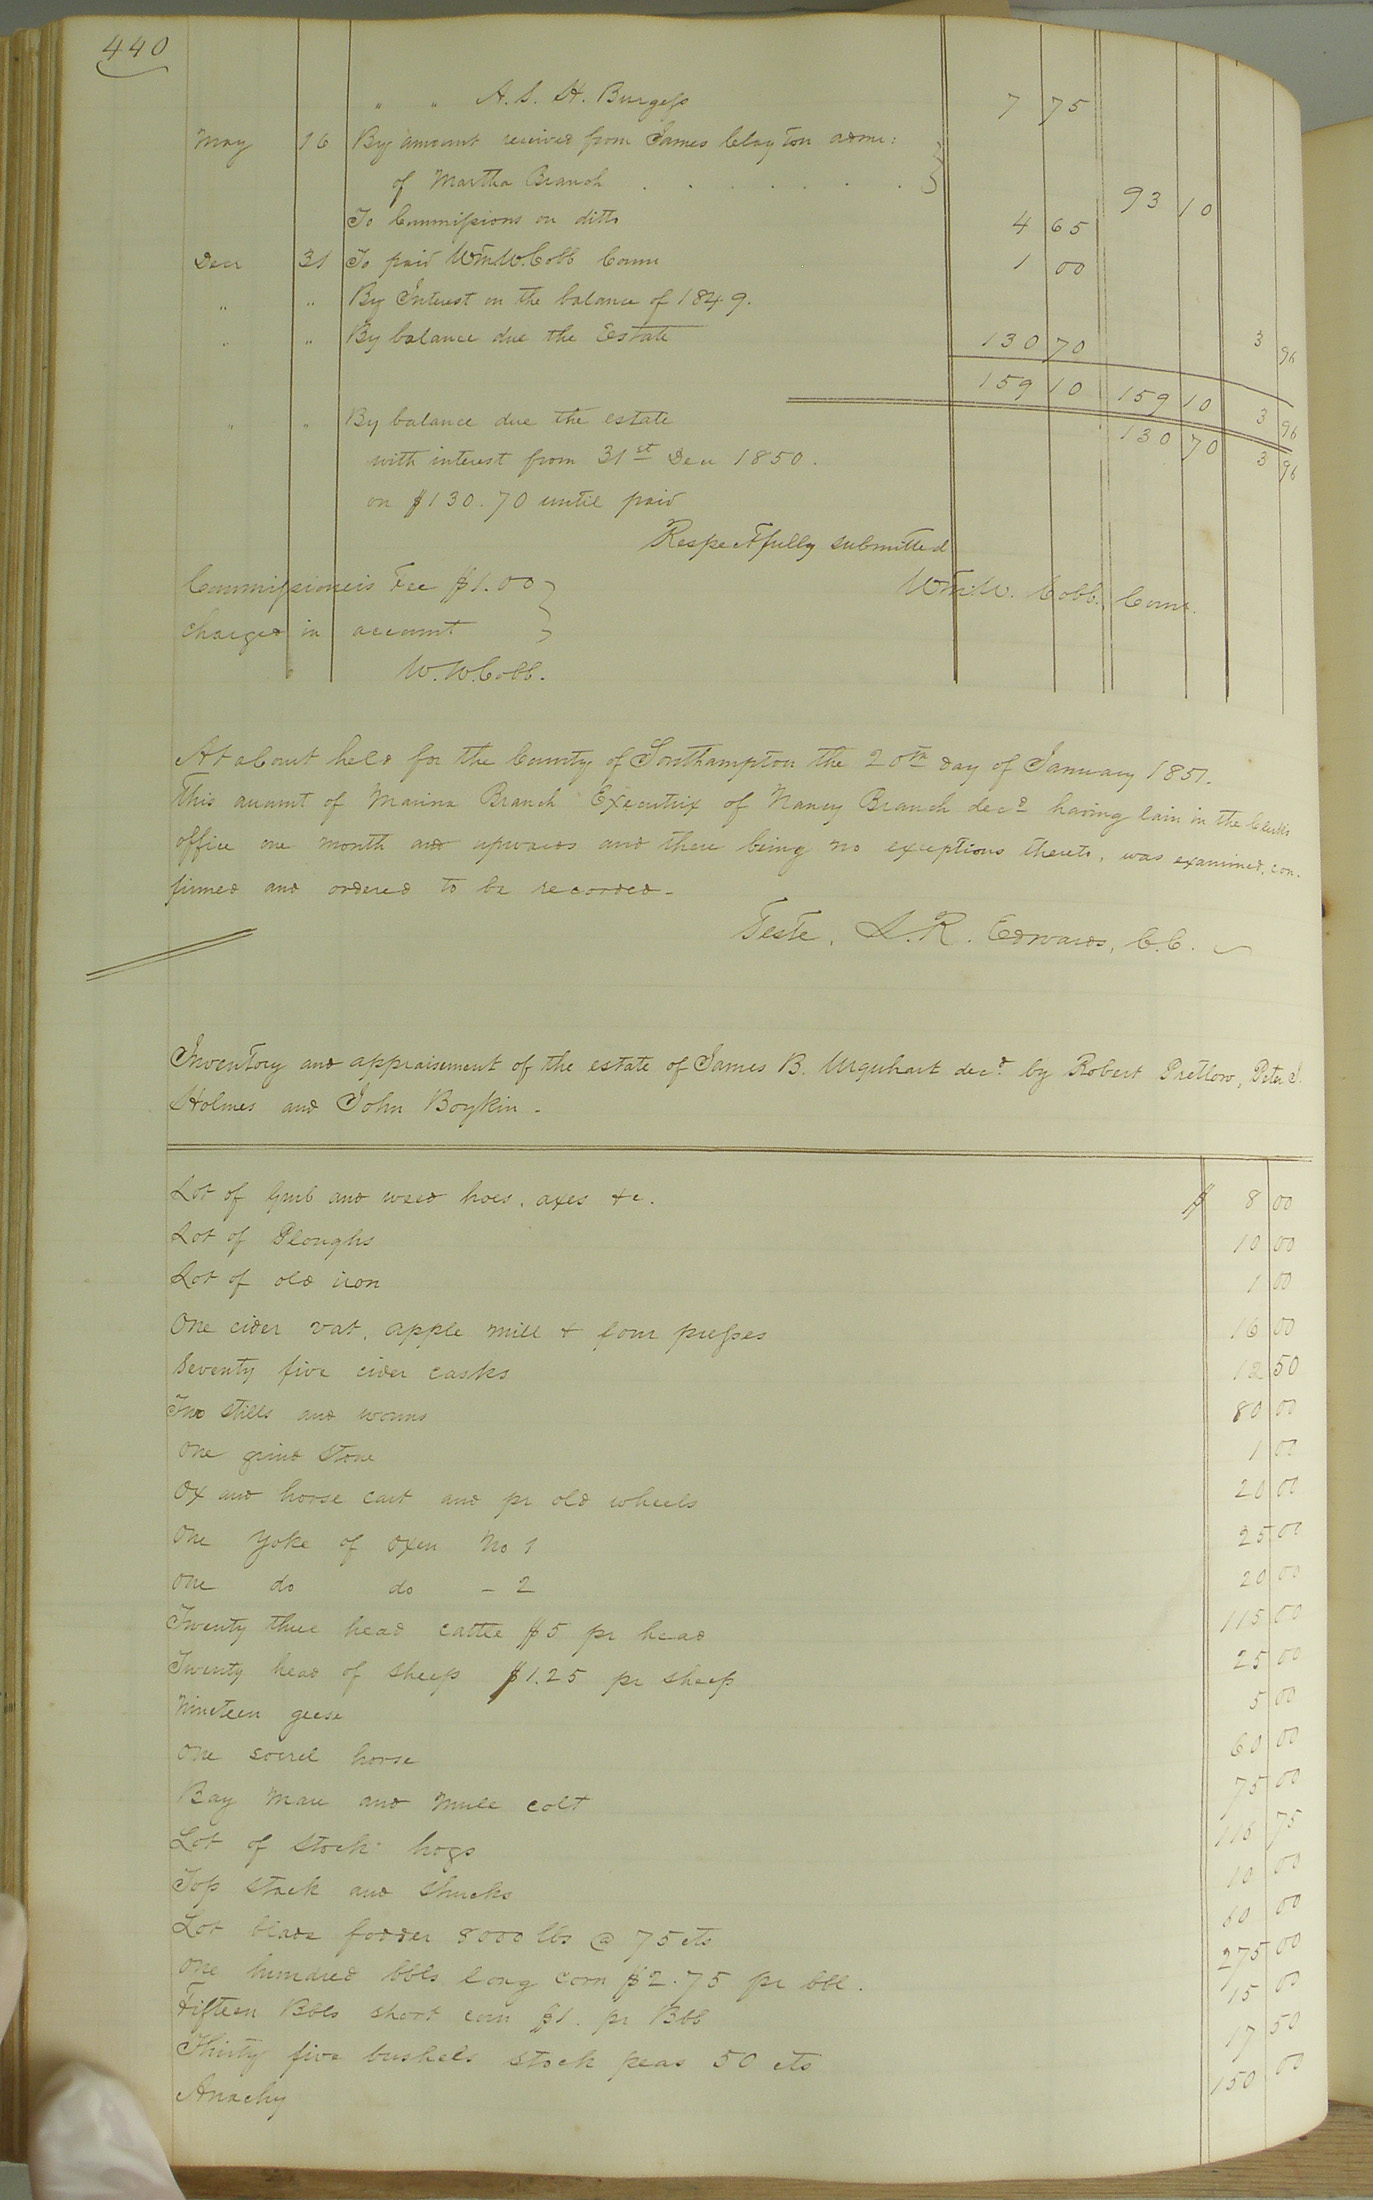 440
" " A. S. H. Burgess 7 75
May 16 By amount received from James Clayton admr:
of Martha Branch . . . . . . . 93 10
To Commissions on ditto 4 65
Decr 31 To paid Wm. W. Cobb Comr 1 00
" " By Interest on the balance of 1849. 3 96
" " By balance due the Estate 130 70
159 10 159 10 3 96
" " By balance due the estate 130 70 3 96
with interest from 31st Decr 1850.
on $130.70 until paid
Respectfully submitted
Wm. W. Cobb. Comr.
Commissioneis Fee $1.00
charged in account
W. W. Cobb.
At a Court held for the County of Southampton the 20th day of January 1851.
This account of Marina Branch Executrix of Nancy Branch decd having lain in the Clerks
office one month and upwards and there being no exceptions thereto, was examined, con-
firmed and ordered to be recorded-
Teste, L. R. Edwards, C. C.
Inventory and appraisement of the estate of James B. Urquhart decd. by Robert Pretlow, Peter J.
Holmes and John Boykin -
Lot of Grub and weed hoes, axes &c. $ 8 00
Lot of Ploughs 10 00
Lot of old iron 1 00
One cider vat, apple mill & four presses 16 00
Seventy five cider casks 12 50
Two Stills and worms 80 00
One grind stone 1 00
Ox and horse cart and pr old wheels 20 00
One yoke of oxen No 1 25 00
One do do - 2 20 00
Twenty three head cattle $5 pr head 115 00
Twenty head of sheep $1.25 pr sheep 25 00
Nineteen geese 5 00
One sorrel horse 60 00
Bay Mare and Mule colt 75 00
Lot of stock hogs 118 75
Top stack and shucks 10 00
Lot blade fodder 8000 lbs @ 75 cts 60 00
One hundred bbls long corn $2.75 pr bbl. 275 00
Fifteen Bbls short corn $1. pr Bbl 15 00
Thirty five bushels stock peas 50 cts 17 50
Anachy 150 00